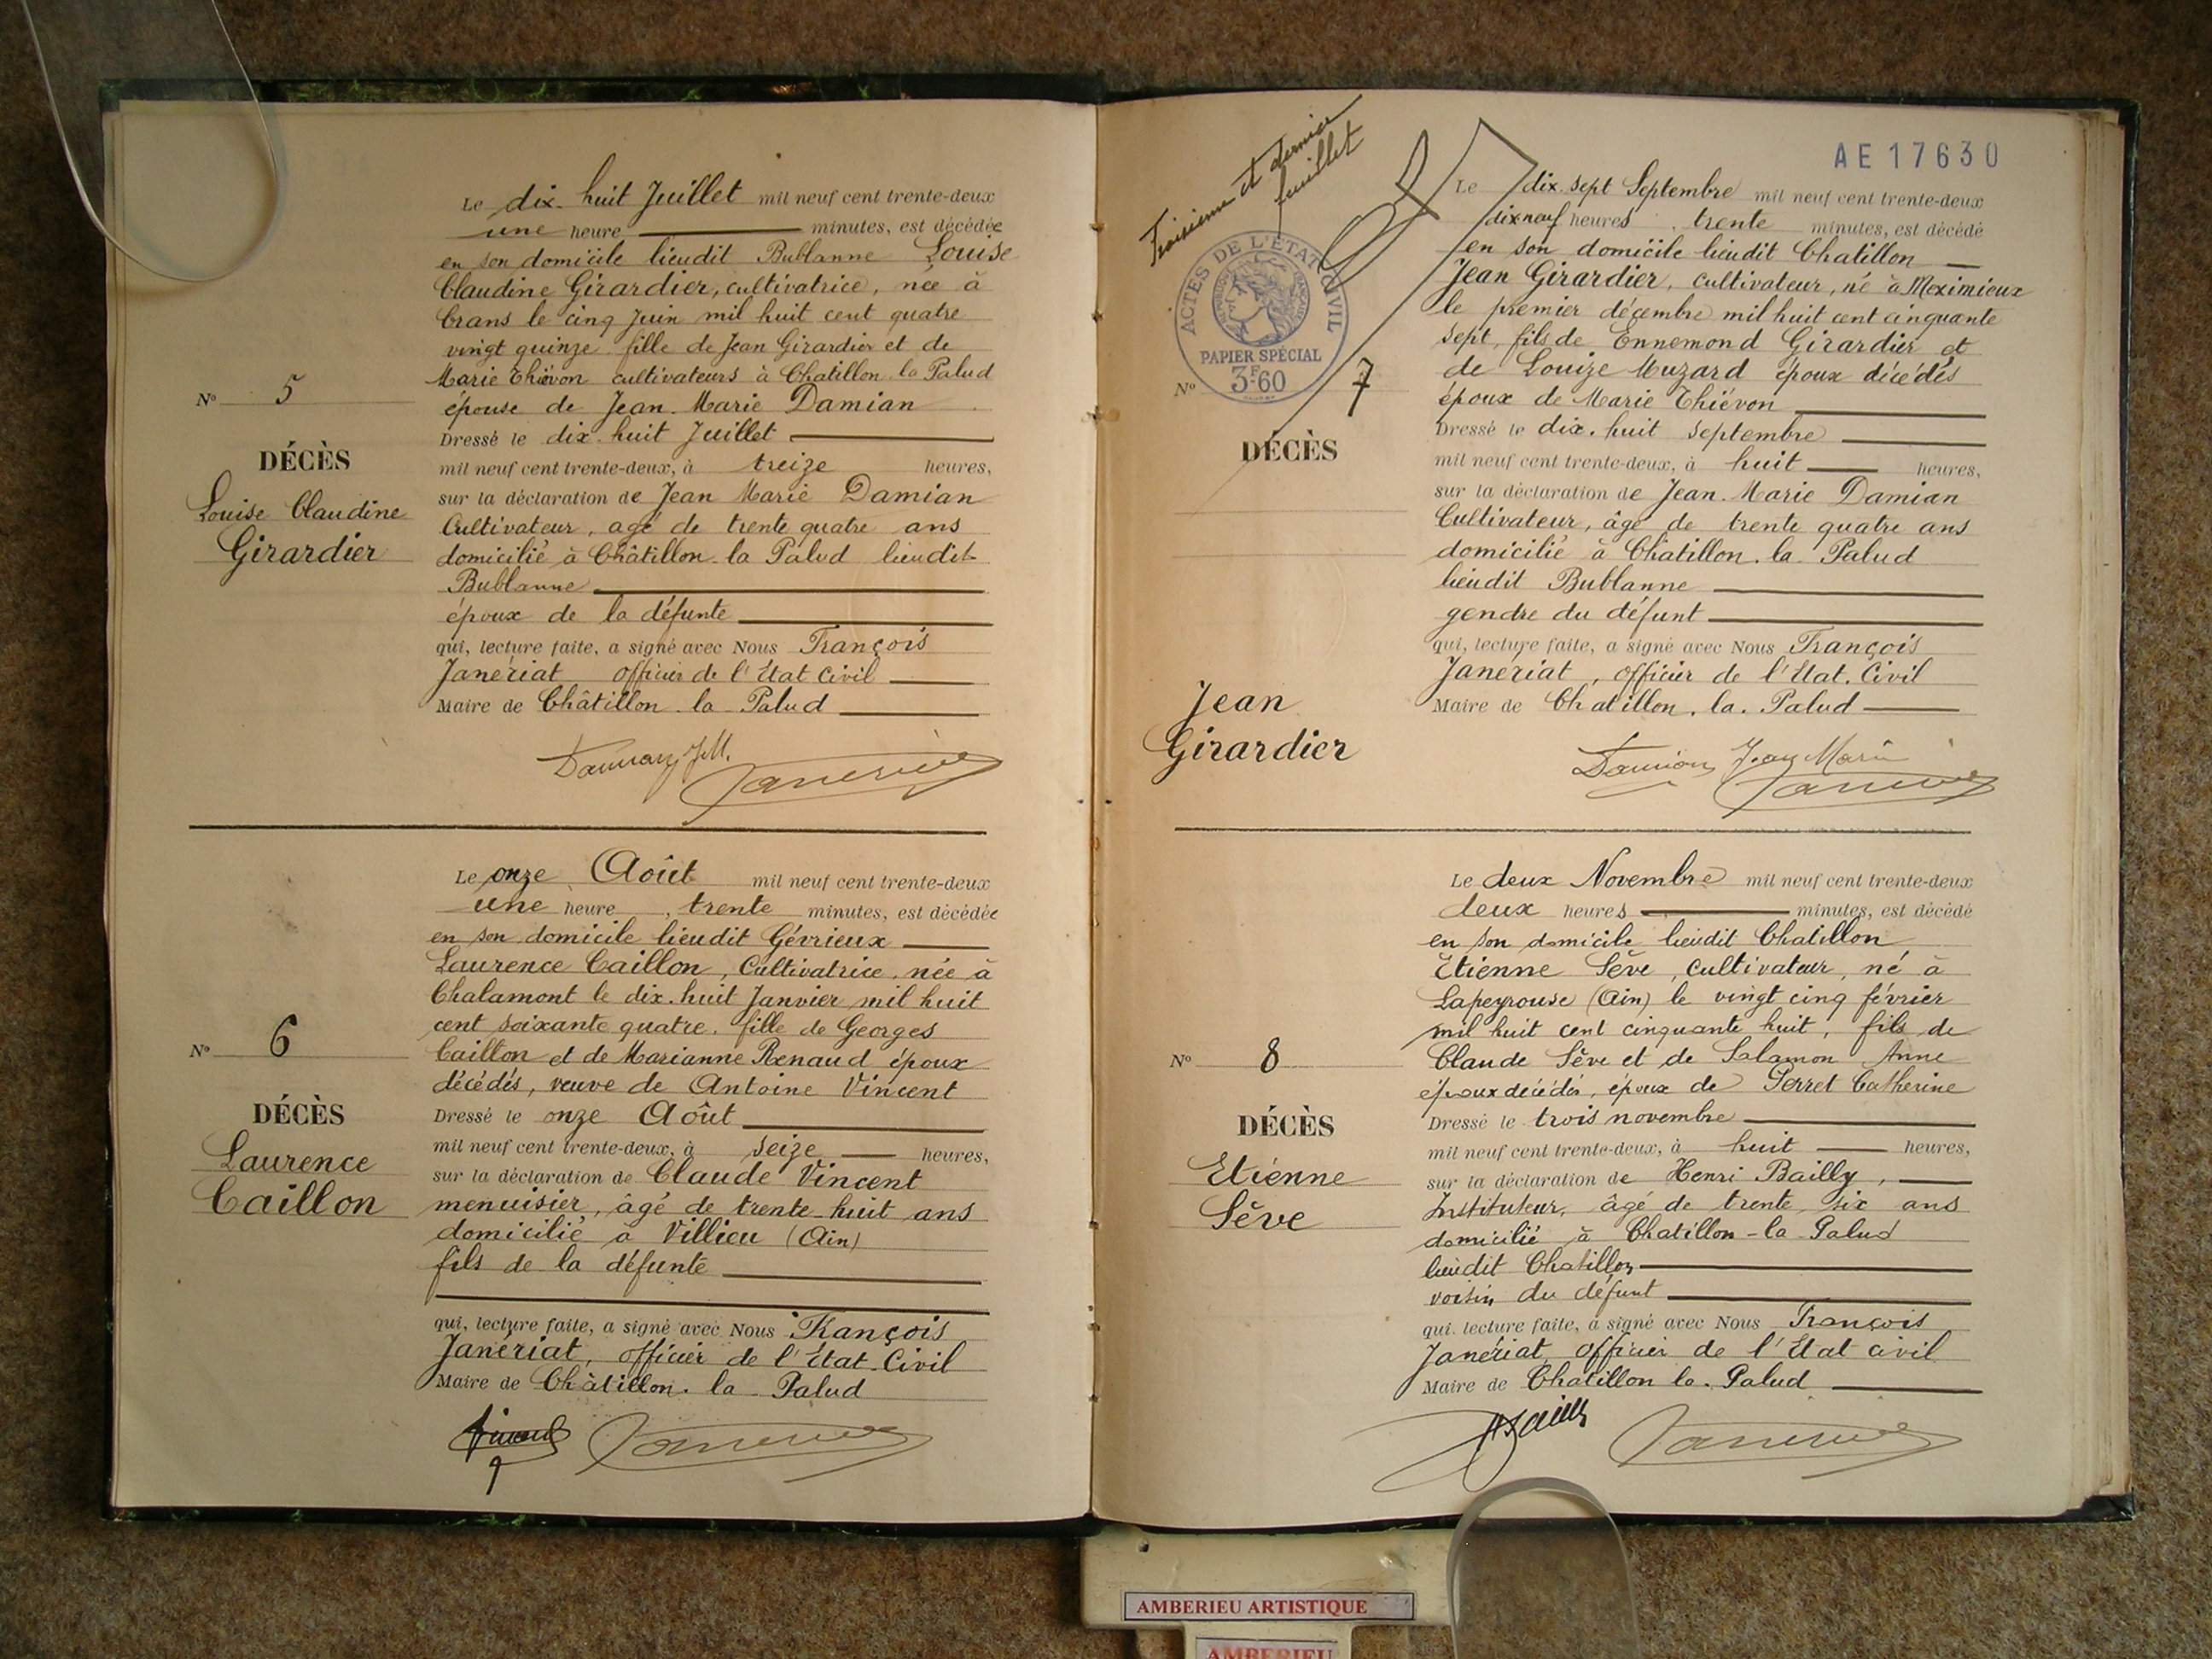 Le dix-huit Juillet mil neuf cent trente-deux
une heure minutes, est décédée
en son domicile lieudit Bublanne Louise
Claudine Girardier, cultivatrice, née à
Crans le cinq Juin mil huit cent quatre
vingt quinze fille de Jean Girardier et de
Marie Thiévon cultivateurs à Chatillon la Palud
épouse de Jean-Marie Damian
Dressé le dix-huit Juillet
mil neuf cent trente-deux, à treize heures,
sur la déclaration de Jean Marie Damian
Cultivateur, agé de trente quatre ans
domicilié à Châtillon-la Palud lieudit
Bublanne
époux de la défunte
qui, lecture faite, a signé avec Nous François
Janériat officier de l'Etat Civil
Maire de Châtillon-la-Palud
Nº 5
DÉCÈS
Louise Claudine
Girardier
Damian J.M.
Janeriat
Le onze Août mil neuf cent trente-deux
une heure, trente minutes, est décédée
en son domicile lieudit Gévrieux
Laurence Caillon, Cultivatrice, née à
Chalamont le dix-huit Janvier mil huit
cent soixante quatre, fille de Georges
Caillon et de Marianne Renaud époux
décédés, veuve de Antoine Vincent
Dressé le onze Août
mil neuf cent trente-deux, à seize heures,
sur la déclaration de Claude Vincent
menuisier, âgé de trente-huit ans
domicilié à Villieu (Ain)
fils de la défunte
qui, lecture faite, a signé avec Nous François
Janériat, officier de l'Etat-Civil
Maire de Châtillon-la-Palud
Nº 6
DÉCÈS
Laurence
Caillon
Vincent
Janeriat
Troisième et dernier
feuillet
ACTES DE L'ÉTAT CIVIL
PAPIER SPÉCIAL
3F60
AE17630
Le dix-sept Septembre mil neuf cent trente-deux
dix neuf heures trente minutes, est décédé
en son domicile lieudit Chatillon
Jean Girardier, cultivateur, né à Meximieux
le premier décembre mil huit cent cinquante
sept, fils de Ennemond Girardier et
de Louize Muzard époux décédés
époux de Marie Thiévon
Dressé le dix-huit Septembre
mil neuf cent trente-deux, à huit heures,
sur la déclaration de Jean-Marie Damian
Cultivateur, âgé de trente quatre ans
domicilié à Chatillon-la-Palud
lieudit Bublanne
gendre du défunt
qui, lecture faite, a signé avec Nous François
Janériat, officier de l'Etat-Civil
Maire de Chatillon-la-Palud
Nº 7
DÉCÈS
Jean
Girardier
Damian Jean Marie
Janeriat
Le deux Novembre mil neuf cent trente-deux
deux heures minutes, est décédé
en son domicile lieudit Chatillon
Etienne Sève, cultivateur, né à
Lapeyrouse (Ain) le vingt cinq février
mil huit cent cinquante huit, fils de
Claude Sève et de Salamon Anne
époux décédés, époux de Perret Catherine
Dressé le trois novembre
mil neuf cent trente-deux, à huit heures,
sur la déclaration de Henri Bailly,
Instituteur, âgé de trente six ans
domicilié à Chatillon-la-Palud
lieudit Chatillon
voisin du défunt
qui, lecture faite, a signé avec Nous François
Janériat, officier de l'Etat civil
Maire de Chatillon la-Palud
Nº 8
DÉCÈS
Etienne
Sève
HBailly
Janeriat
AMBERIEU ARTISTIQUE
AMBERIEU